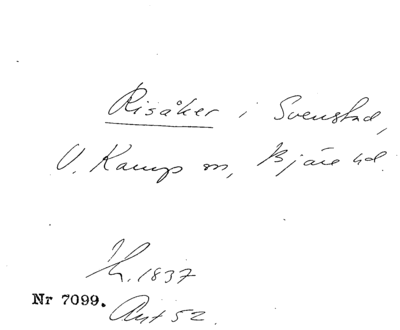 Risåker i Svenstad,
V. Karup sn, Bjäre hd.
Th. 1837
Nr 7099.
Avt 52.